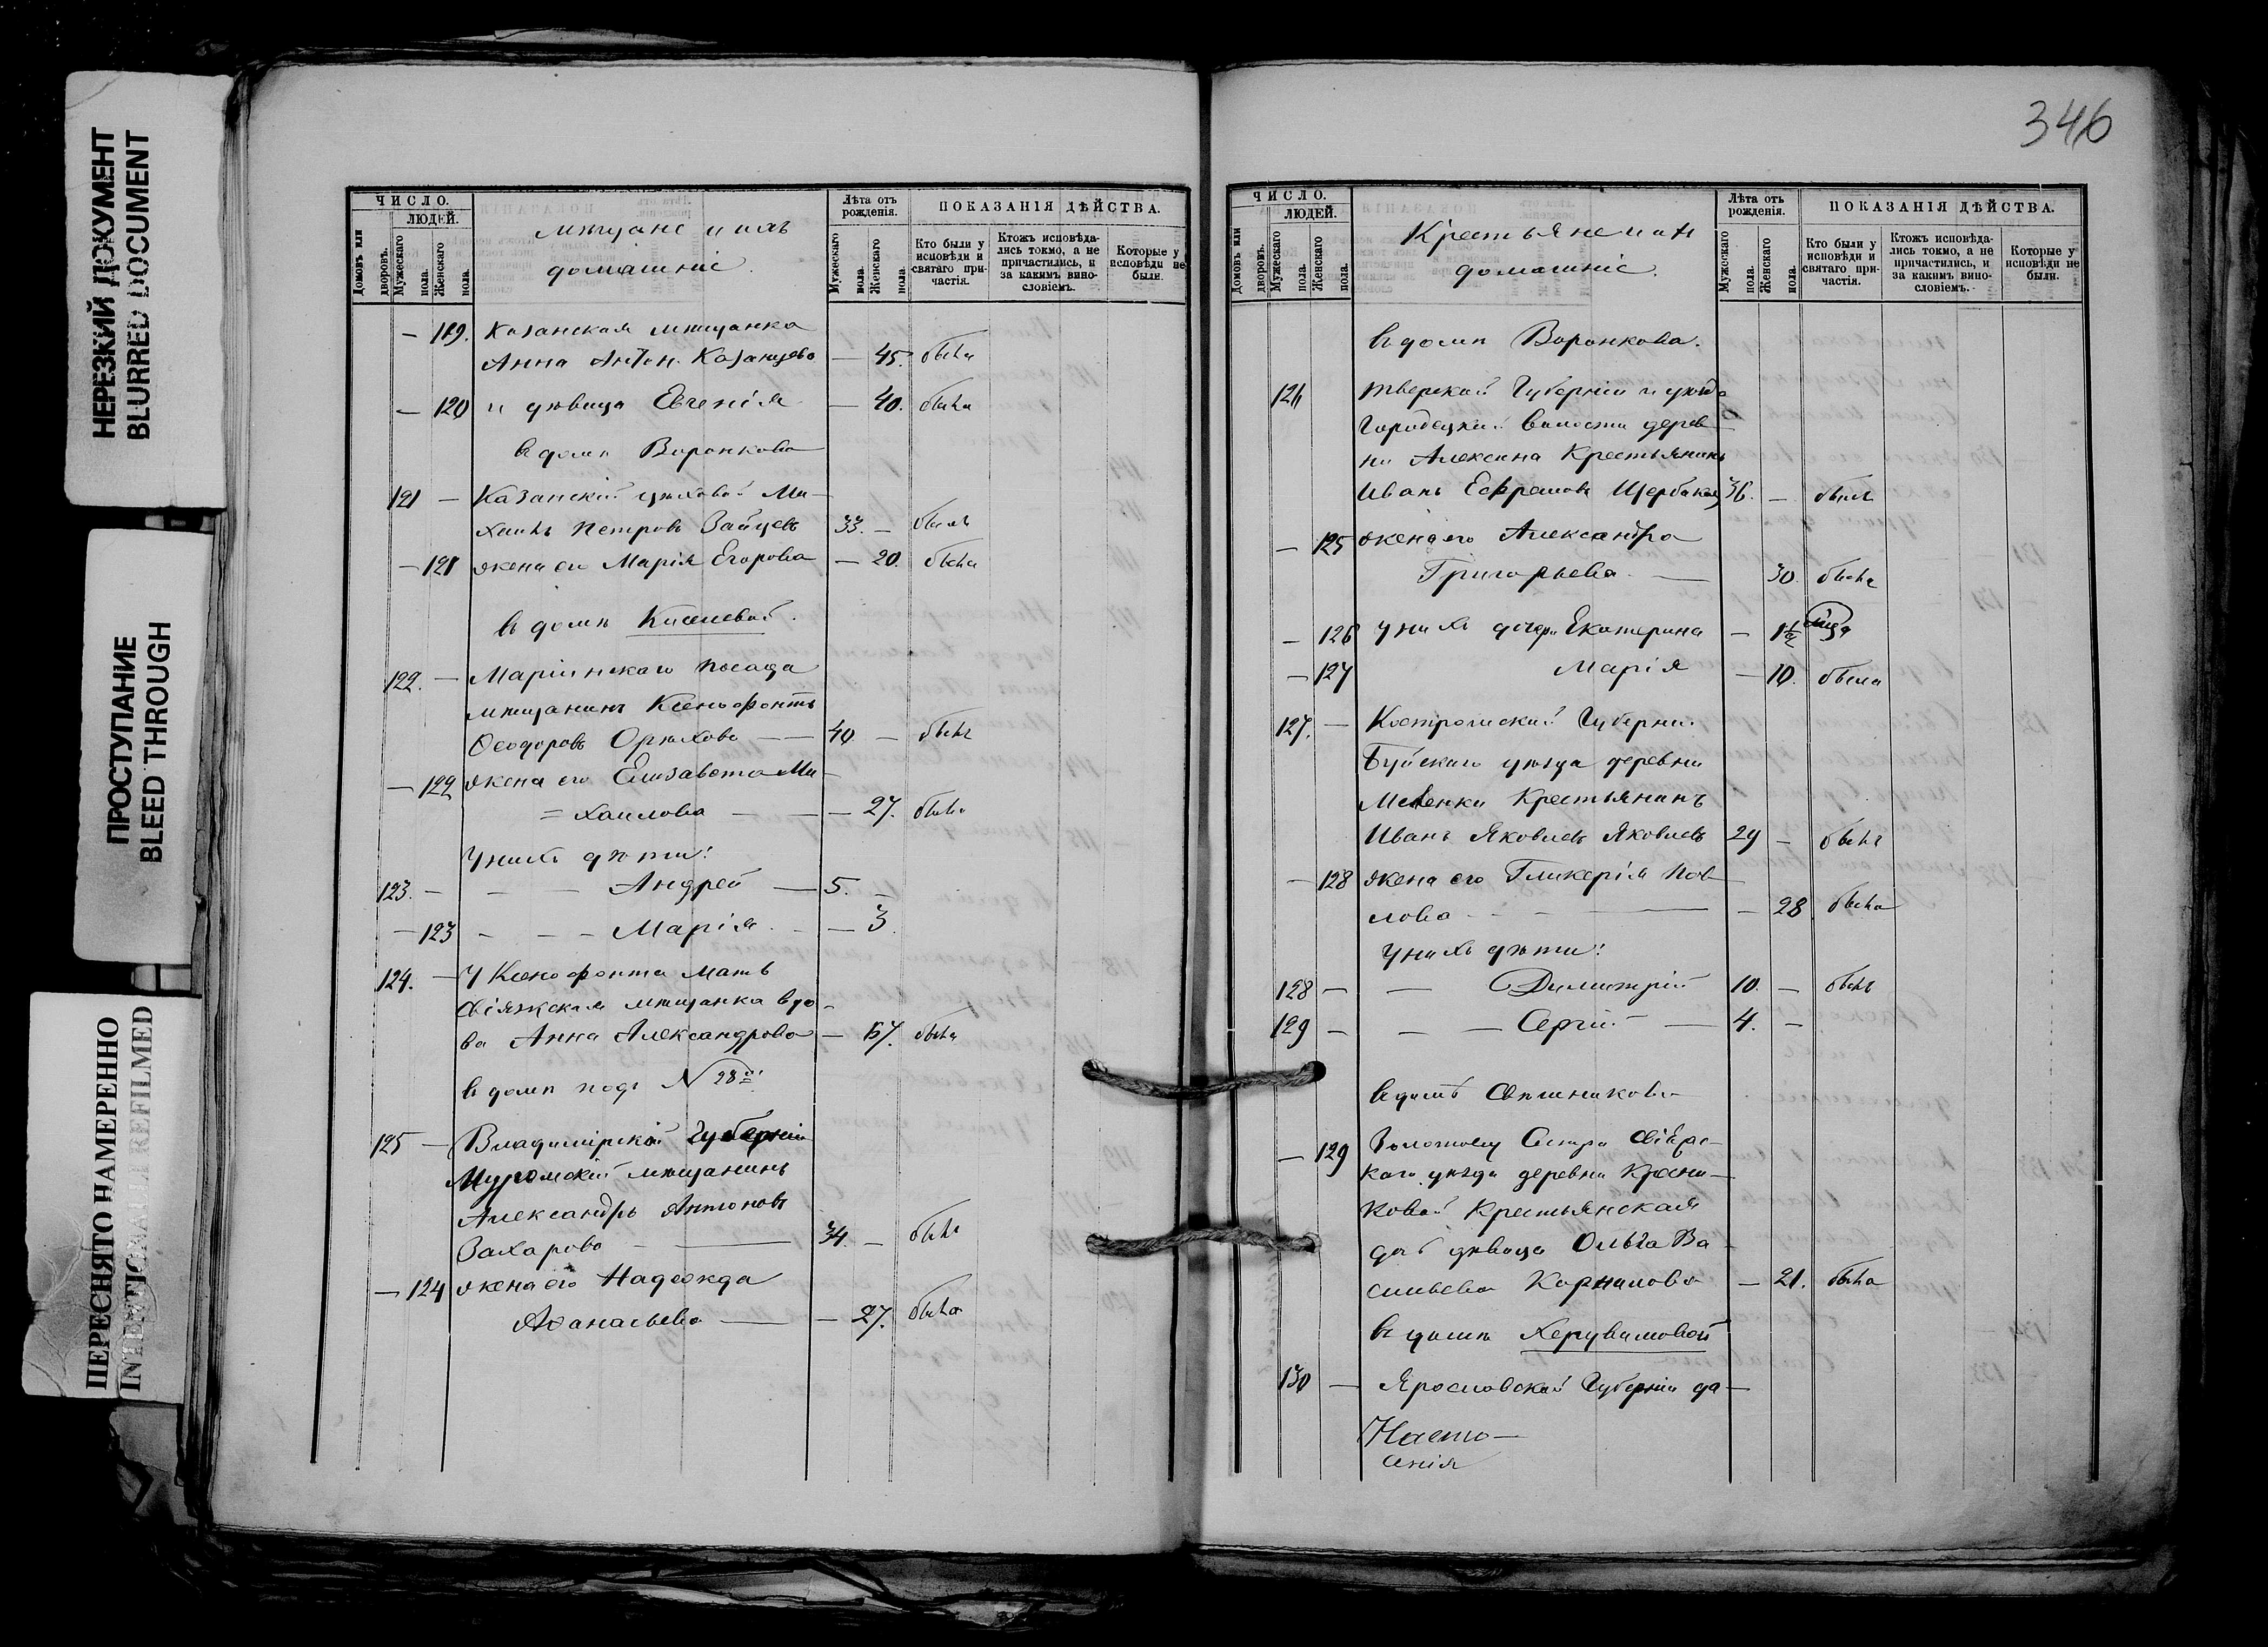 НЕРЕЗКИЙ ДОКУМЕНТ
BLURRED DOCUMENT
ПРОСТУПАНИЕ
BLEED THROUGH
ПЕРЕСНЯТО НАМЕРЕННО
INTENTIONALLY REFILMED
ЧИСЛО.
ЛЮДЕЙ.
Домовъ или дворовъ.
Мужескаго пола.
Женскаго пола.
мѣщане и ихъ
домашніе.
Лѣта отъ рожденія.
Мужескаго пола.
Женскаго пола.
ПОКАЗАНІЯ ДѢЙСТВА.
Кто были у исповѣди и святаго при- частія.
Ктожъ исповѣда- лись токмо, а не причастились, и за какимъ вино- словіемъ.
Которые у исповѣди не были.
— 119. Казанская мѣщанка
Анна Антон. Казанцева — 45. была
— 120 и дѣвица Евгенія — 40. была
въ домѣ Воронкова
121 — Казанскій цѣховой Ми-
хаилъ Петровъ Зайцевъ 33. — былъ
— 121 жена его Марія Егорова — 20. была
въ домѣ Киселевой.
122. — Маріинскаго посада
мѣщанинъ Ксенофонтъ
Ѳеодоровъ Орѣховъ — 40 — былъ
— 122 жена его Елизавета Ми-
= хаилова — — 27. была
У нихъ дѣти:
123. — — — Андрей — 5. —
— 123 — — — Марія. — 3.
124. — У Ксенофонта мать
Свіяжская мѣщанка вдо-
ва Анна Александрова — 67. была
въ домѣ подъ № 28
125 — Владимірской Губерніи
Муромскій мѣщанинъ
Александръ Антоновъ
Захаровъ — 34. — былъ
— 124 жена его Надежда
Аѳанасьева — — 27. была
346
ЧИСЛО.
ЛЮДЕЙ.
Домовъ или дворовъ.
Мужескаго пола.
Женскаго пола.
Крестьяне и ихъ
домашніе.
Лѣта отъ рожденія.
Мужескаго пола.
Женскаго пола.
ПОКАЗАНІЯ ДѢЙСТВА.
Кто были у исповѣди и святаго при- частія.
Ктожъ исповѣда- лись токмо, а не причастились, и за какимъ вино- словіемъ.
Которые у исповѣди не были.
въ домѣ Воронкова.
126 Тверской Губерніи и уѣзда
Городецкой волости дерев-
ни Алексина Крестьянинъ
Иванъ Ефремовъ Щербаковъ 36. — былъ
— 125 жена его Александра
Григорьева — 30. была
— 126 у нихъ дочери Екатерина — 1½
— 127 Марія — 10. была
127. — Костромской Губерніи
Буйскаго уѣзда деревни
Меленки Крестьянинъ
Иванъ Яковлевъ Яковлевъ 29 — былъ
— 128 жена его Гликерія Пав-
лова — — 28 была
У нихъ дѣти:
128 — — Димитрій 10. — былъ
129 — — — Сергій — 4. —
въ домѣ
— 129
каго уѣзда деревни
ковой Крестьянская
дѣвица Ольга Ва-
сильева Корнилова — 21. была
въ домѣ Херувимовой
130 — Ярославской Губерніи да-